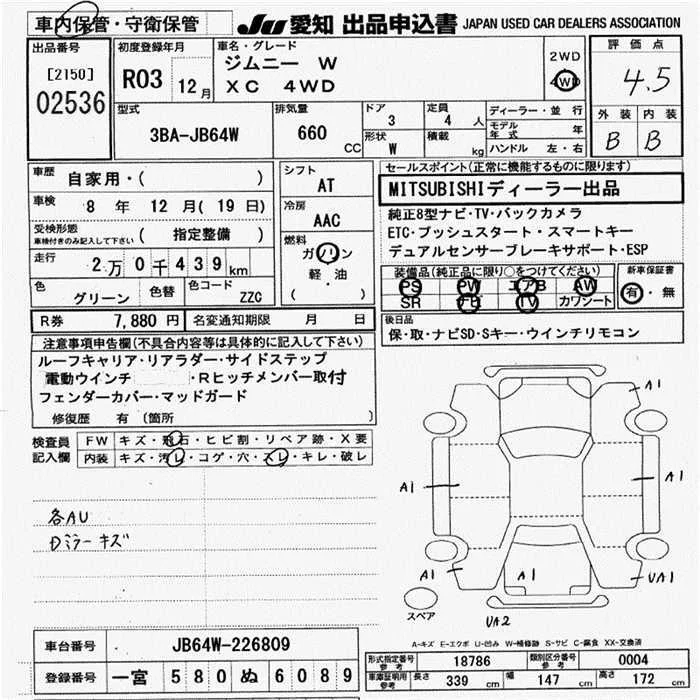 車内保管・守衛保管
JU 愛知 出品申込書 JAPAN USED CAR DEALERS ASSOCIATION
出品番号
[2150]
02536
初度登録年月
R03 12月
車名・グレード
ジムニー W
XC 4WD
2WD
4WD
評価点
4.5
外装 内装
B B
型式
3BA-JB64W
排気量
660 CC
ドア
3
形状
W
定員
4 人
積載
kg
ディーラー・並行
モデル年式 年
ハンドル 左・右
車歴
自家用・( )
車検 8 年 12 月 ( 19 日)
受検形態
車検付きのみ記入して下さい ( 指定整備 )
走行 2万0千439km
色
グリーン
色替
色コード
ZZC
シフト
AT
冷房
AAC
燃料
ガソリン
軽・油
( )
セールスポイント(正常に機能するものに限ります)
MITSUBISHIディーラー出品
純正8型ナビ・TV・バックカメラ
ETC・プッシュスタート・スマートキー
デュアルセンサーブレーキサポート・ESP
装備品(純正品に限り○をつけてください)
PS PW エアB AW
SR TV カワシート
新車保証書
有・無
R券 7,880 円 名変通知期限 月 日
後日品
保・取・ナビSD・Sキー・ウインチリモコン
注意事項申告欄(不具合内容等は具体的に記入して下さい)
ルーフキャリア・リアラダー・サイドステップ
電動ウインチ ・Rヒッチメンバー取付
フェンダーカバー・マッドガード
修復歴 有 (箇所 )
検査員記入欄
FW キズ・飛石・ヒビ割・リペア跡・X要
内装 キズ・汚レ・コゲ・穴・スレ・キレ・破レ
各AU
Dミラー キズ
A1
A1
A1
A1
A1
UA1
UA2
スペア
A-キズ E-エクボ U-凹み W-補修跡 S-サビ C-腐食 XX-交換済
車台番号 JB64W-226809
登録番号 一宮 580 ぬ 6089
形式指定番号参考 18786 類別区分番号参考 0004
車庫証明用参考 長さ 339 cm 幅 147 cm 高さ 172 cm